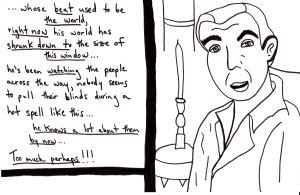 ... whose beat used to be
the world,
right now his world has
shrunk down to the size of
this window...
he's been watching the people
across the way, nobody seems
to pull their blinds during a
hot spell like this...
he knows a lot about them
by now...
Too much perhaps!!!